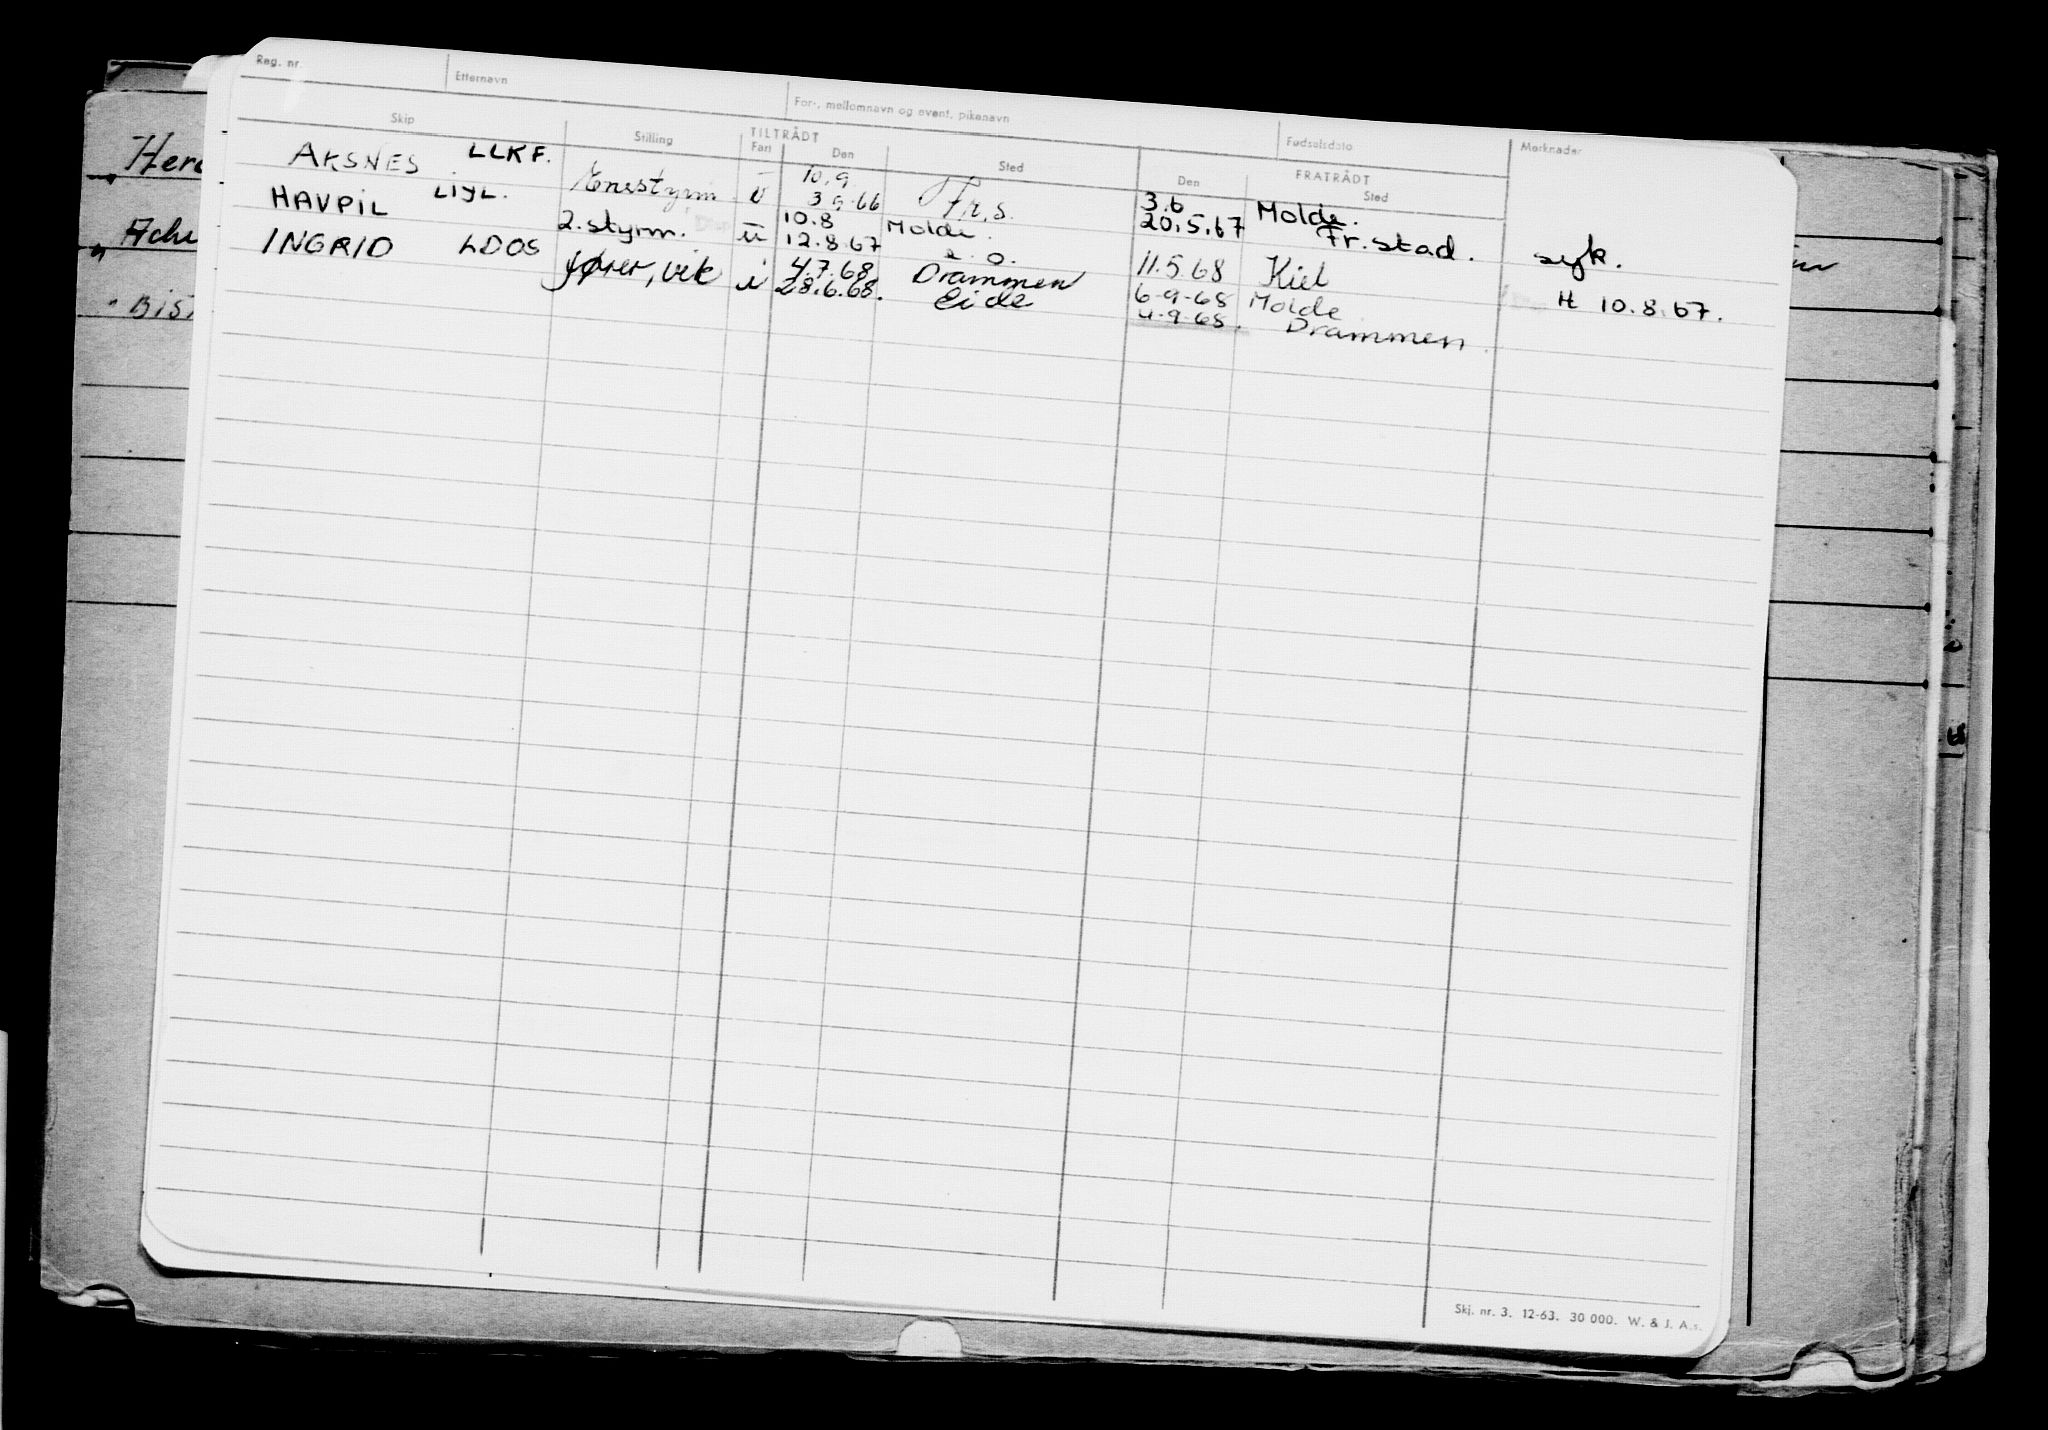 Reg. nr. Etternavn For-, mellomnavn og event. pikenavn Fødselsdato Merknader
Skip Stilling TILTRÅDT FRATRÅDT
Fart Den Sted Den Sted
AKSNES LLKF. Enestyrm u 10.9 3.6 Molde.
3.9.66 Fr.s. 20.5.67 Fr.stad. syk.
HAVPIL LIYL. 2.styrm. u 10.8 Molde.
12.8.67 s.o. 11.5.68 Kiel H 10.8.67.
INGRID LDOS fører, vik i 4.7.68 Drammen 6-9-68 Molde
28.6.68. Eide 4-9-68. Drammen.
Skj. nr. 3. 12-63. 30 000. W. & J. A.s.